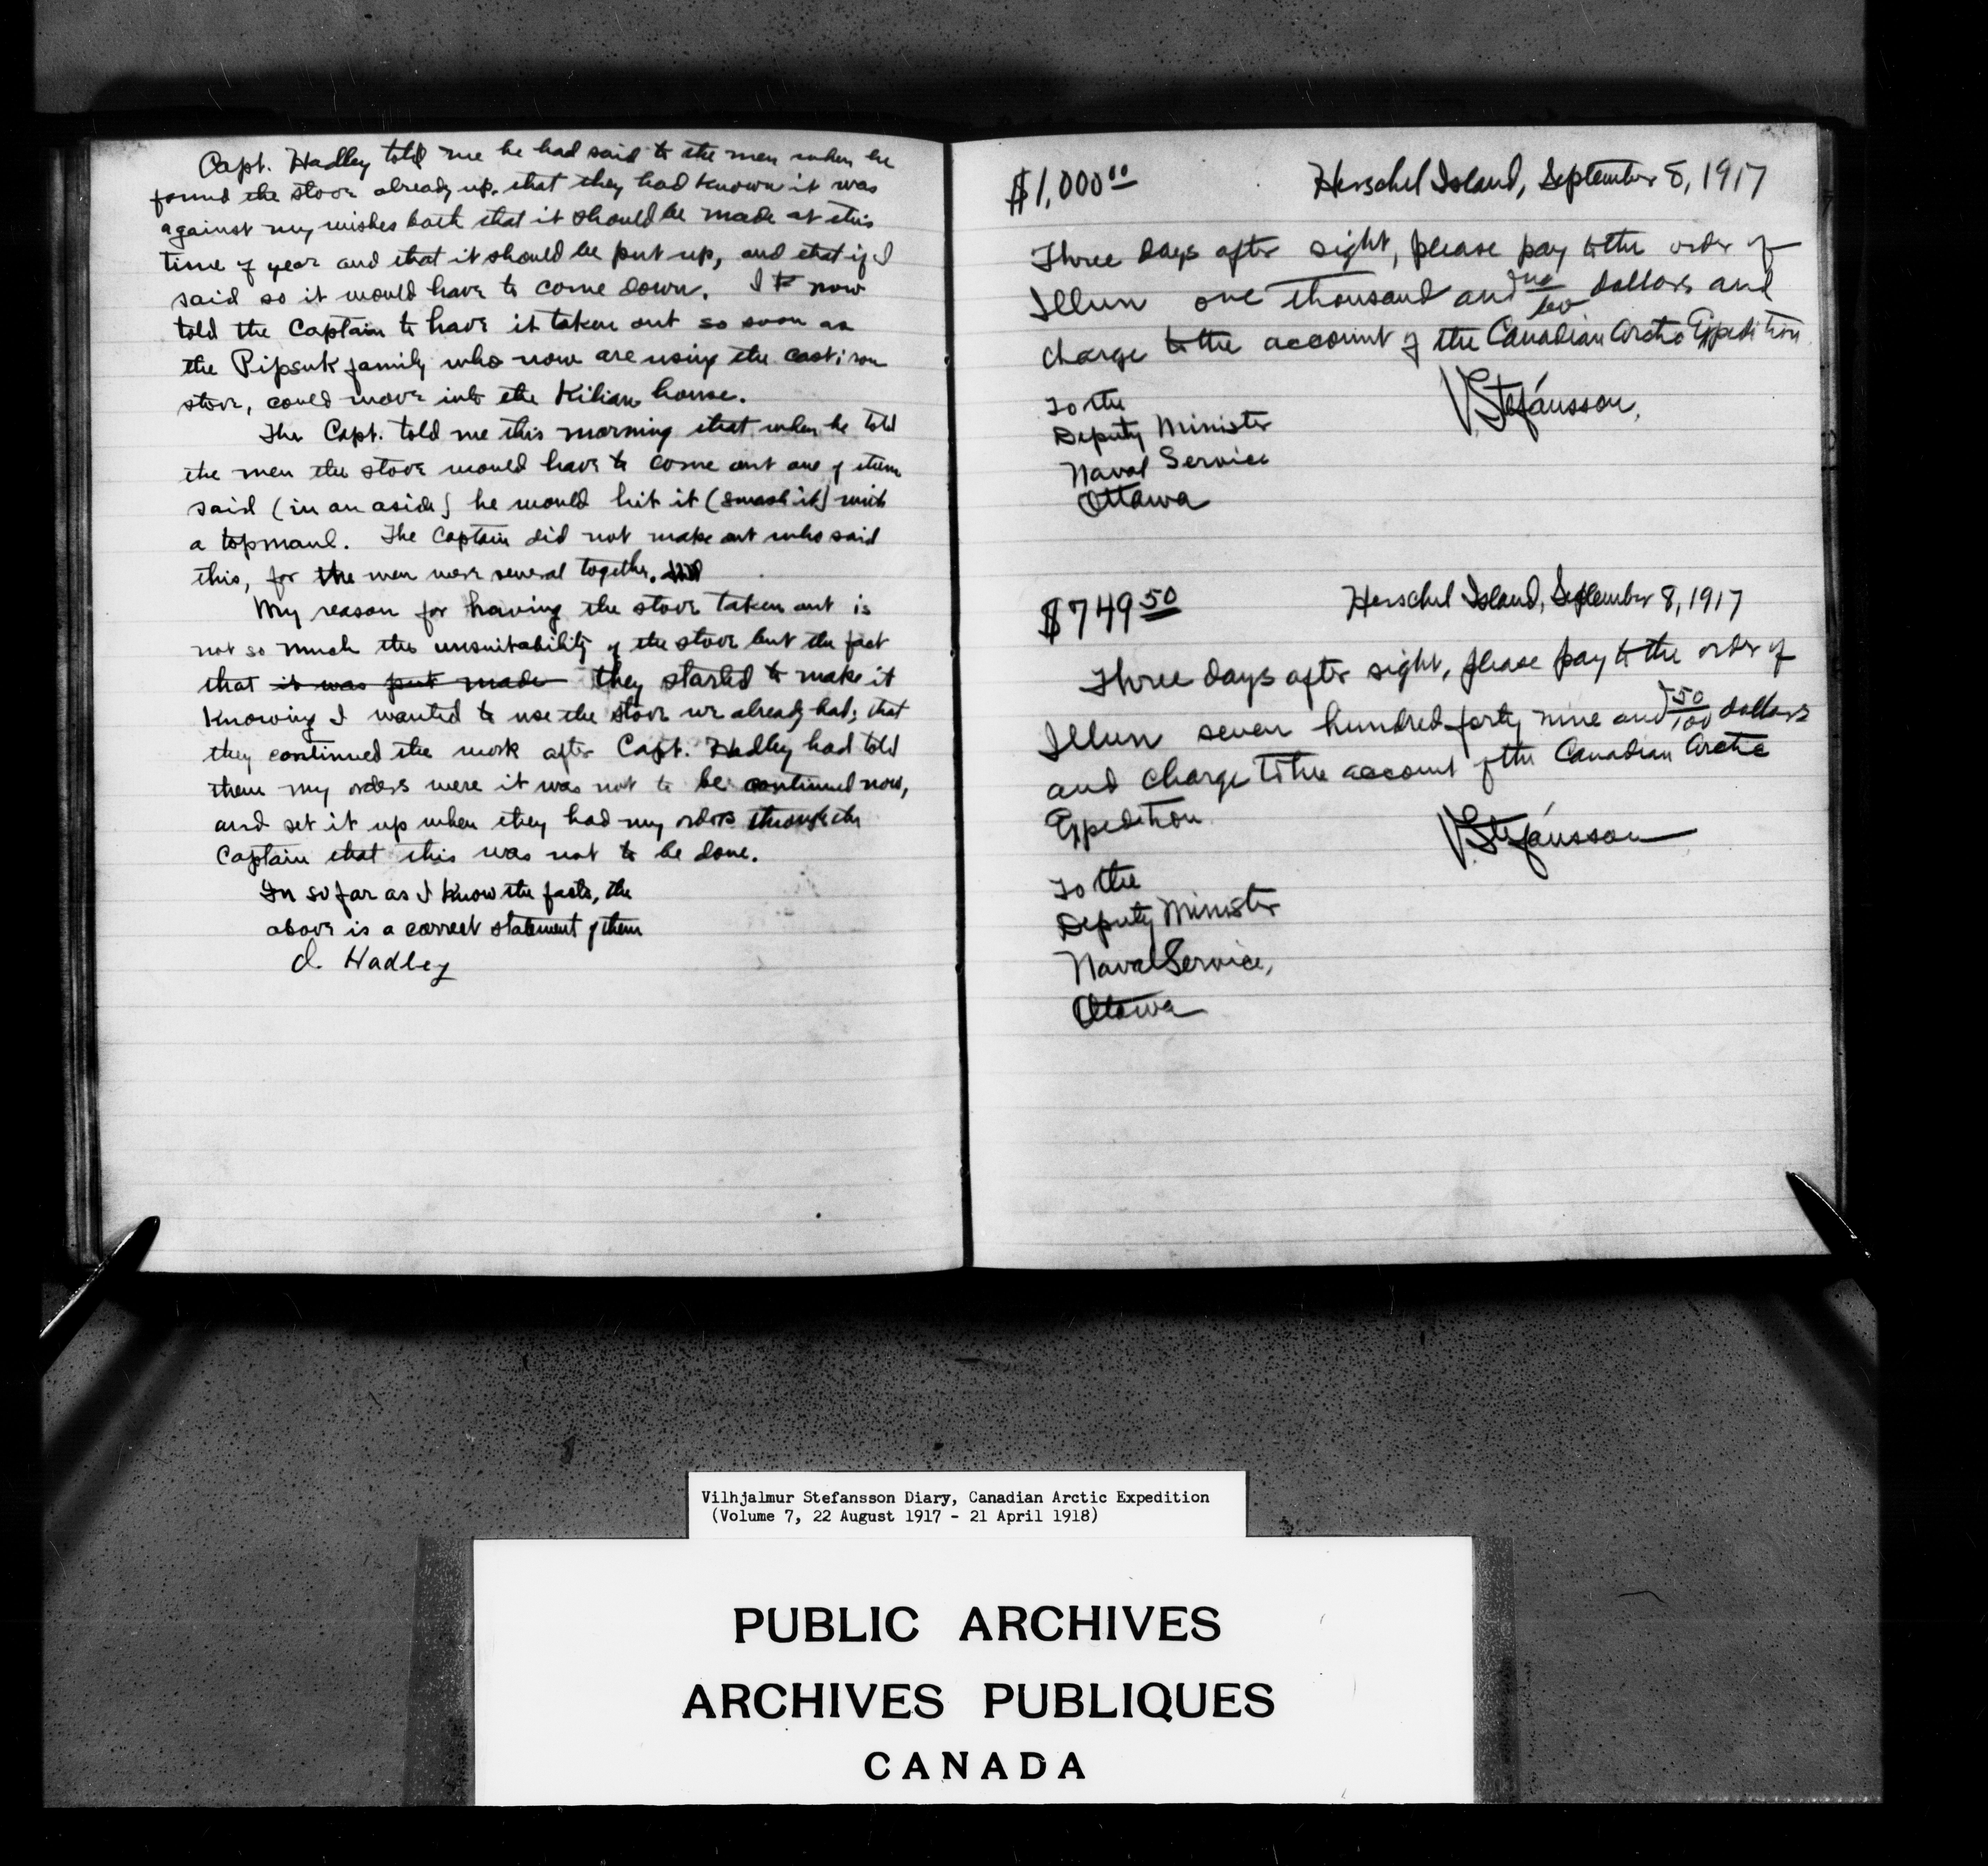 Capt. Hadley told me he had said to the men when he
found the stove already up, that they had known it was
against my wishes both that it should be made at this
time of year and that it should be put up, and that if I
said so it would have to come down. I now
told the Captain to have it taken out so soon as
the Pipsuk family who now are using the cast iron
stove, could move into the Kilian house.
The Capt. told me this morning that when he told
the men the stove would have to come out one of them
said (in an aside) he would hit it (smash it) with
a topmaul. The Captain did not make out who said
this, for the men were several together.
My reason for having the stove taken out is
not so much the unsuitability of the stove but the fact
that it was put made they started to make it
knowing I wanted to use the stove we already had; that
they continued the work after Capt. Hadley had told
them my orders were it was not to be continued now,
and set it up when they had my orders through the
Captain that this was not to be done.
In so far as I know the facts, the
above is a correct statement of them
J. Hadley
$1,000.00 Herschel Island, September 8, 1917
Three days after sight, please pay to the order of
Illun one thousand and no/100 dollars and
charge to the account of the Canadian Arctic Expedition
V. Stefánsson,
To the
Deputy Minister
Naval Service
Ottawa
$749 50 Herschel Island, September 8, 1917
Three days after sight, please pay to the order of
Illun seven hundred forty nine and 50/100 dollars
and charge to the account of the Canadian Arctic
Expedition
V. Stefánsson
To the
Deputy Minister
Naval Service,
Ottawa
Vilhjalmur Stefansson Diary, Canadian Arctic Expedition
(Volume 7, 22 August 1917 - 21 April 1918)
PUBLIC ARCHIVES
ARCHIVES PUBLIQUES
CANADA